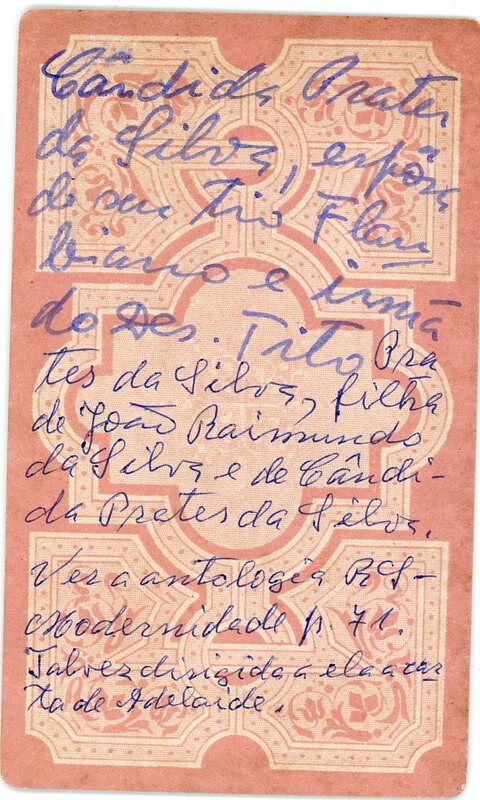 Cândida Prates
da Silva, espôsa
do seu tio Flau
biano e irmã
do Des. Tito Pra
tes da Silva, filha
de João Raimundo
da Silva e de Cândi-
da Prates da Silva.
Ver a antologia RS-
Modernidade p. 71.
Talvez dirigida a ela a car-
ta de Adelaide.